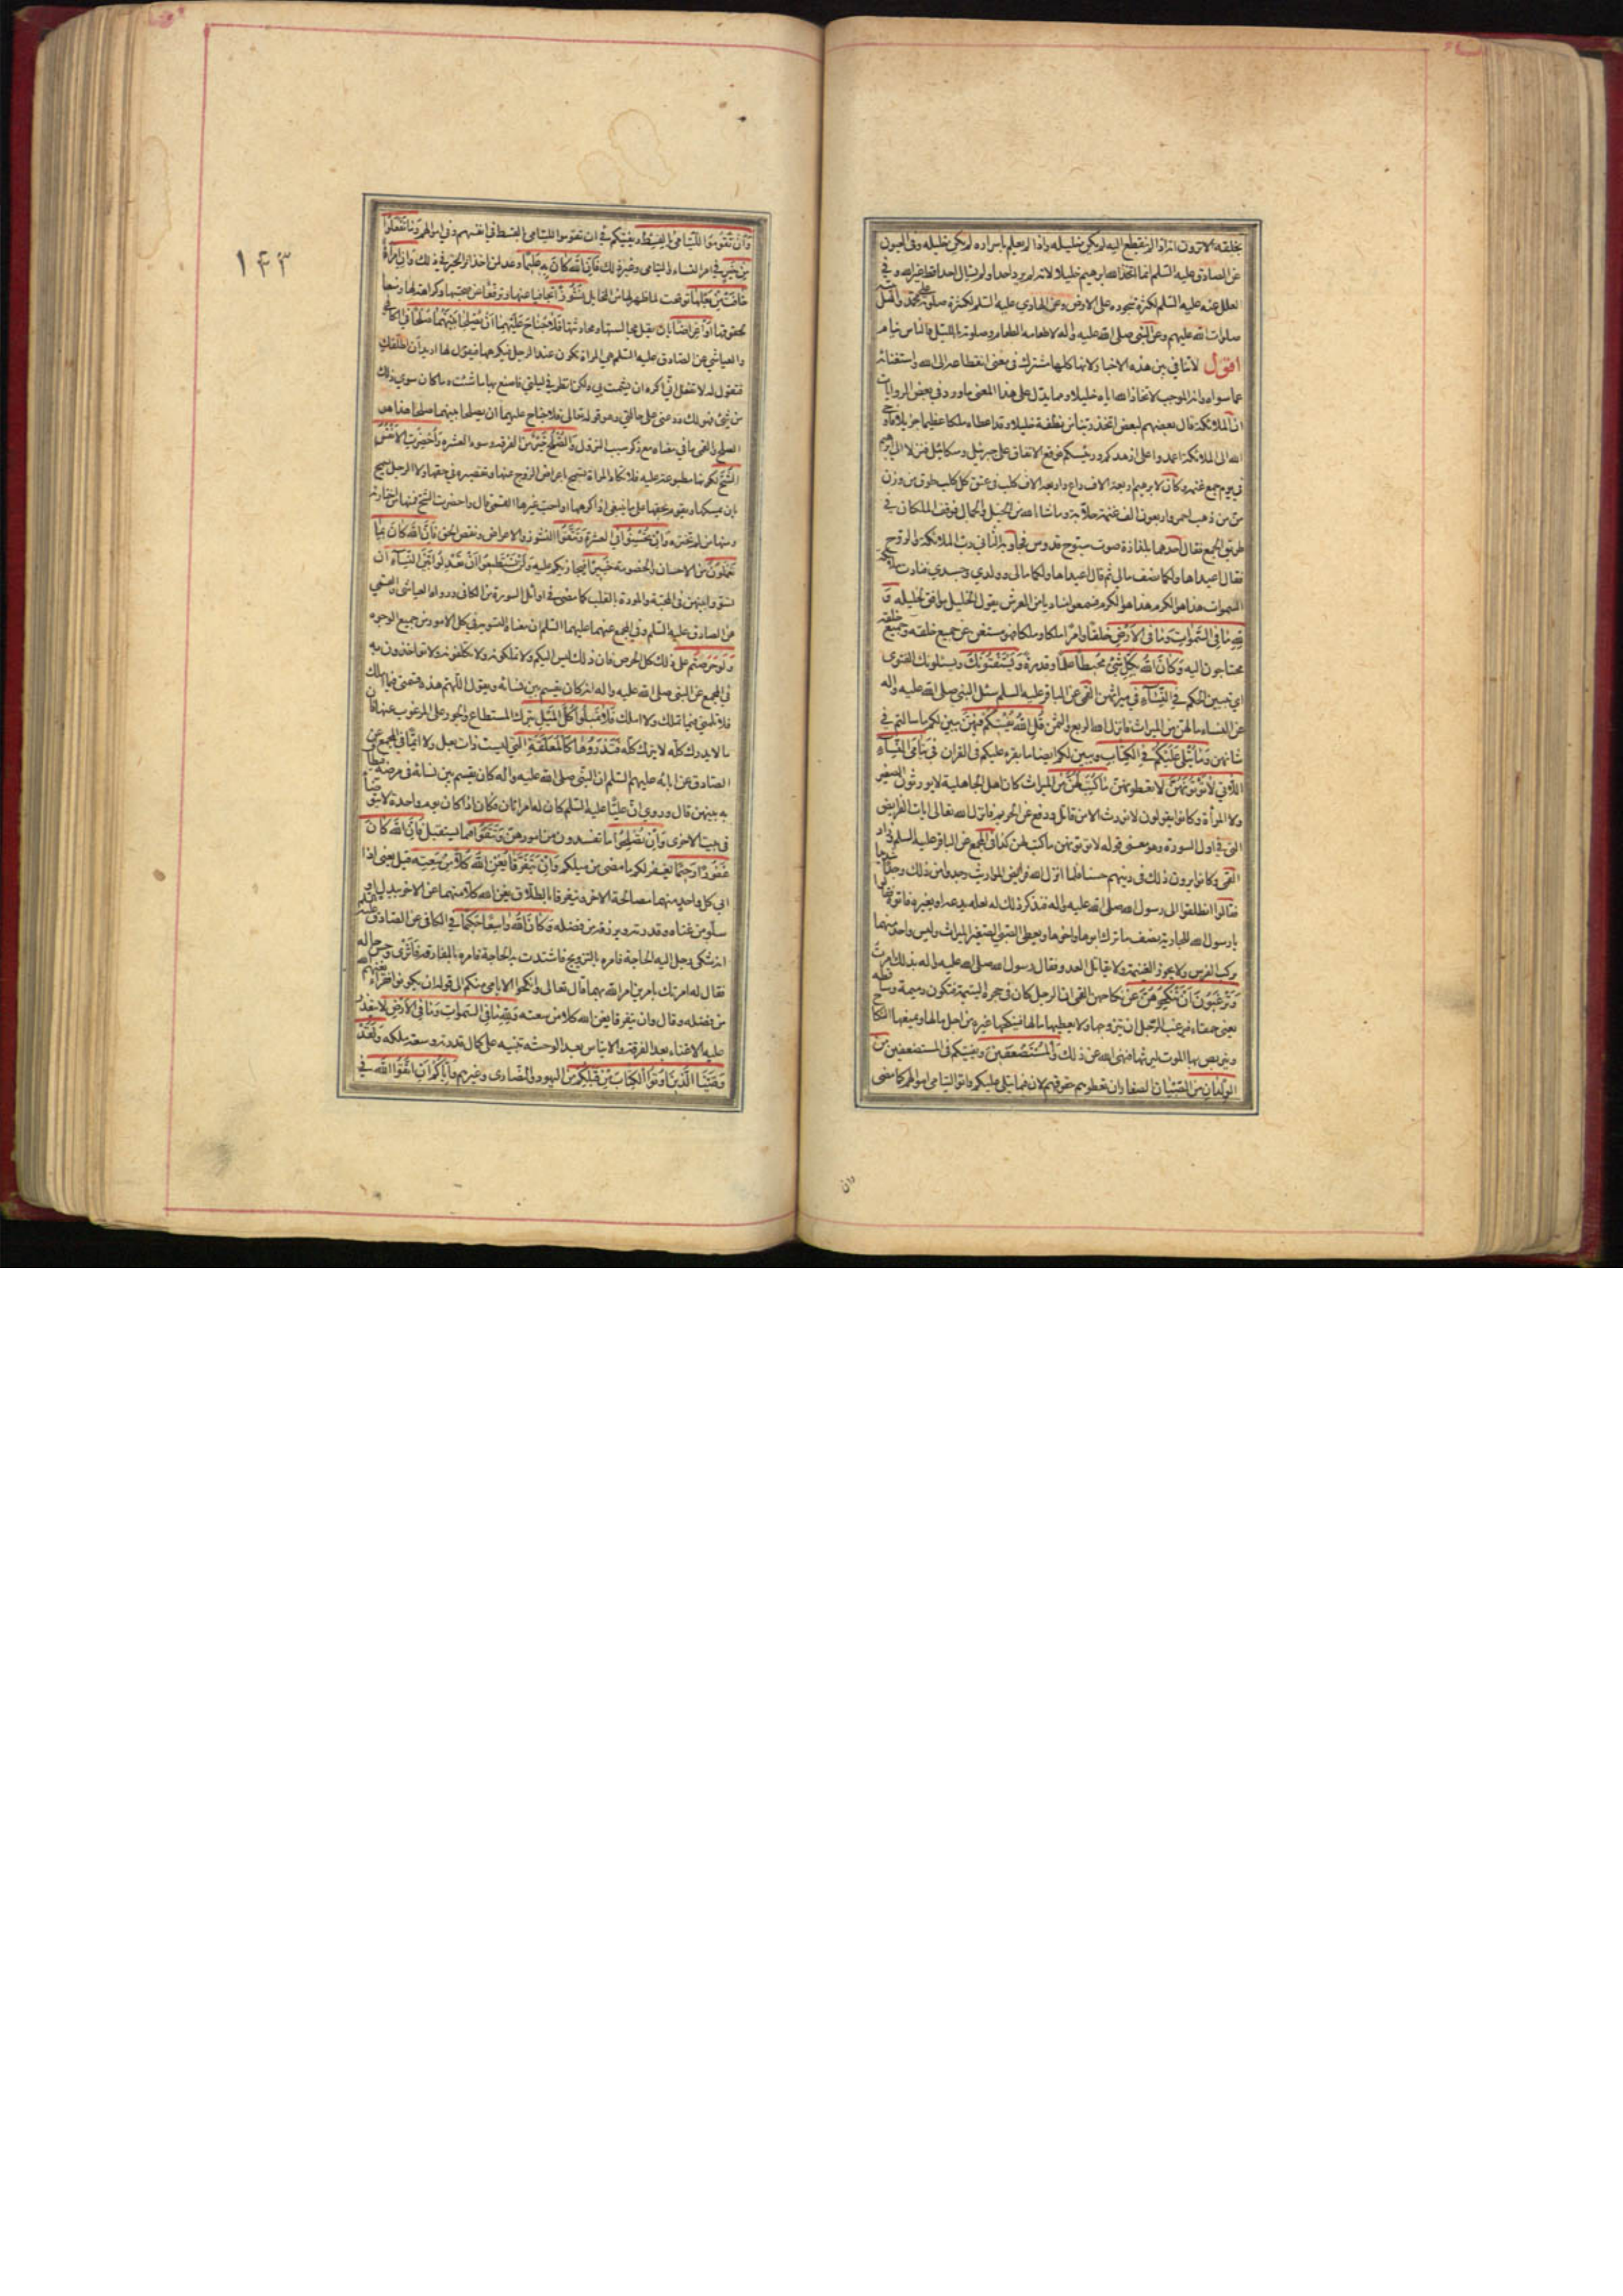 بخلقه الا ترون انه اذا لم ينقطع اليه لم يكن خليله واذا لم يعلم باسراره لم يكن خليله وفي العيون
عن الصادق عليه السلم انما اتخذ الله ابرهيم خليلا لانه لم يرد احدا ولم يسال احدا قط غير الله وفي
العلل عنه عليه السلم لكثرة سجوده على الارض وعن الهادي عليه السلم لكثرة صلوته على محمد واهل بيته
صلوات الله عليهم وعن النبي صلى الله عليه واله لاطعامه الطعام وصلوته بالليل والناس نيام
اقول لا تنافي بين هذه الاخبار لانها كلها مشترك في معنى انقطاعه الى الله واستغنائه
عما سواه وانه الموجب لاتخاذ الله اياه خليلا ومما يدل على هذا المعنى ما ورد في بعض الروايات
ان الملائكة قال بعضهم لبعض اتخذ ربنا من نطفة خليلا وقد اعطاه ملكا عظيما جزيلا فاوحى
الله الى الملائكة اعمدوا على ازهدكم ورئيسكم فوقع الاتفاق على جبرئيل وميكائيل فنزلا الى ابرهيم
في يوم جمع غنمه وكان لابرهيم اربعة الاف راع واربعة الاف كلب في عنق كل كلب طوق من وزن
من من ذهب احمر واربعون الف غنمة حلابة وما شاء الله من الخيل والجمال فوقف الملكان في
طريق الجمع فقال احدهما بلذاذة صوت سبوح قدوس فجاوبه الثاني رب الملائكة والروح
فقال اعيداها ولكما نصف مالي ثم قال اعيداها ولكما مالي وولدي وجسدي فنادت ملائكة
السموات هذا هو الكرم هذا هو الكرم فسمعوا مناديا من العرش يقول الخليل موافق لخليله و
لله ما في السموات وما في الارض خلقا وامرا ملكا وملكا فهو مستغن عن جميع خلقه وجميع خلقه
محتاجون اليه وكان الله بكل شئ محيطا علما وقدرة ويستفتونك ويسئلونك الفتوى
اي تبيين الحكم في النساء في ميراثهن القمي عن الباقر عليه السلم سئل النبي صلى الله عليه واله
عن النساء ما لهن من الميراث فانزل الله الربع والثمن قل الله يفتيكم فيهن يبين لكم ما سالتم في
شانهن وما يتلى عليكم في الكتاب ويبين لكم ايضا ما يقرء عليكم في القران في يتامى النساء
اللاتي لا تؤتونهن لا تعطونهن ما كتب لهن من الميراث كان اهل الجاهلية لا يورثون الصغير
ولا المرأة وكانوا يقولون لا نورث الا من قاتل ودفع عن الحريم فانزل الله تعالى ايات الفرايض
التي في اول السورة وهو معنى قوله لا تؤتونهن ما كتب لهن كذا في المجمع عن الباقر عليه السلم وزاد
القمي وكانوا يرون ذلك في دينهم حسنا فلما انزل الله فرايض المواريث وجدوا من ذلك وجدا شديدا
فقالوا انطلقوا الى رسول الله صلى الله عليه واله فنذكر ذلك له لعله يدعه او يغيره فاتوه فقالوا
يا رسول الله للجارية نصف ما ترك ابوها واخوها ويعطى الصبي الصغير الميراث وليس واحد منهما
يركب الفرس ولا يحوز الغنيمة ولا يقاتل العدو فقال رسول الله صلى الله عليه واله بذلك امرت
وترغبون ان تنكحوهن عن نكاحهن القمي ان الرجل كان في حجره اليتيمة فتكون دميمة وساقطة
يعني حمقاء فيرغب الرجل ان يتزوجها ولا يعطيها مالها فينكحها غيره من اجل مالها ويمنعها النكاح
ويتربص بها الموت ليرثها فنهى الله عن ذلك والمستضعفين ويفتيكم في المستضعفين من
الولدان من الصبيان الصغار ان تعطوهم حقوقهم لان فيما يتلى عليكم واتوا اليتامى اموالهم كما مضى
وان
١۴٣
وان تقوموا لليتامى بالقسط ويفتيكم في ان تقوموا لليتامى بالقسط في انفسهم وفي اموالهم وما تفعلوا
من خير في امر النساء واليتامى وغير ذلك فان الله كان به عليما وعد لمن اثر الخير في ذلك وان امرأة
خافت من بعلها توقعت لما ظهر لها من المخايل نشوزا تجافيا عنها وترفعا عن صحبتها وكراهة لها ومنعا
لحقوقها او اعراضا بان يقل مجالستها ومحادثتها فلا جناح عليهما ان يصلحا بينهما صلحا في الكافي
والعياشي عن الصادق عليه السلم هي المراة تكون عند الرجل فيكرهها فيقول لها اريد ان اطلقك
فتقول له لا تفعل اني اكره ان يشمت بي ولكن انظر في ليلتي فاصنع بها ما شئت وما كان سوى ذلك
من شئ فهو لك ودعني على حالتي وهو قوله تعالى فلا جناح عليهما ان يصلحا بينهما صلحا هذا هو
الصلح والقمي ما في معناه مع ذكر سبب النزول والصلح خير من الفرقة وسوء العشرة واحضرت الانفس
الشح لكونها مطبوعة عليه فلا تكاد المراة تسمح باعراض الزوج عنها وتقصيره في حقها ولا الرجل يسمح
بان يمسكها ويقوم بحقها على ما ينبغي اذا كرهها او احب غيرها القمي قال واحضرت الشح فمنها من اختارته
ومنها من لم تختره وان تحسنوا في العشرة وتتقوا النشوز والاعراض ونقص الحق فان الله كان بما
تعملون من الاحسان والخصومة خبيرا فيجازيكم عليه ولن تستطيعوا ان تعدلوا بين النساء ان
تسووا بينهن في المحبة والمودة بالقلب كما مضى في اوائل السورة من الكافي ورواه العياشي والقمي
عن الصادق عليه السلم وفي المجمع عنهما عليهما السلم ان معناه التسوية في كل الامور من جميع الوجوه
ولو حرصتم على ذلك كل الحرص فان ذلك ليس اليكم ولا تملكونه ولا تكلفونه ولا تواخذون به
في المجمع عن النبي صلى الله عليه واله انه كان يقسم بين نسائه ويقول اللهم هذه قسمتي فيما املك
فلا تلمني فيما تملك ولا املك فلا تميلوا كل الميل بترك المستطاع والجور على المرغوب عنها فان
ما لا يدرك كله لا يترك كله فتذروها كالمعلقة التي ليست ذات بعل ولا ايما في المجمع عن
الصادق عن ابائه عليهم السلم ان النبي صلى الله عليه واله كان يقسم بين نسائه في مرضه فيطاف
به بينهن قال وروي ان عليا عليه السلم كان له امراتان فكان اذا كان يوم واحدة لا يتوضأ
في بيت الاخرى وان تصلحوا ما تفسدون من امورهن وتتقوا فيما يستقبل فان الله كان
غفورا رحيما يغفر لكم ما مضى من ميلكم وان يتفرقا يغن الله كلا من سعته قيل يعني اذا
ابى كل واحد منهما مصالحة الاخر ويتفرقا بالطلاق يغن الله كلا منهما عن الاخر ببدل او
سلو من غناه وقدرته ويرزقه من فضله وكان الله واسعا حكيما في الكافي عن الصادق عليه السلم
انه شكى رجل اليه الحاجة فامره بالتزويج فاشتدت به الحاجة فامره بالمفارقة فاثرى وحسن حاله
فقال له امرتك بامرين امر الله بهما قال تعالى وانكحوا الايامى منكم الى قوله ان يكونوا فقراء يغنهم الله
من فضله وقال وان يتفرقا يغن الله كلا من سعته ولله ما في السموات وما في الارض لا يتعذر
عليه الاغناء بعد الفرقة والايناس بعد الوحشة تنبيه على كمال قدرته وسعة ملكه ولقد
وصينا الذين اوتوا الكتاب من قبلكم من اليهود والنصارى وغيرهم واياكم ان اتقوا الله في